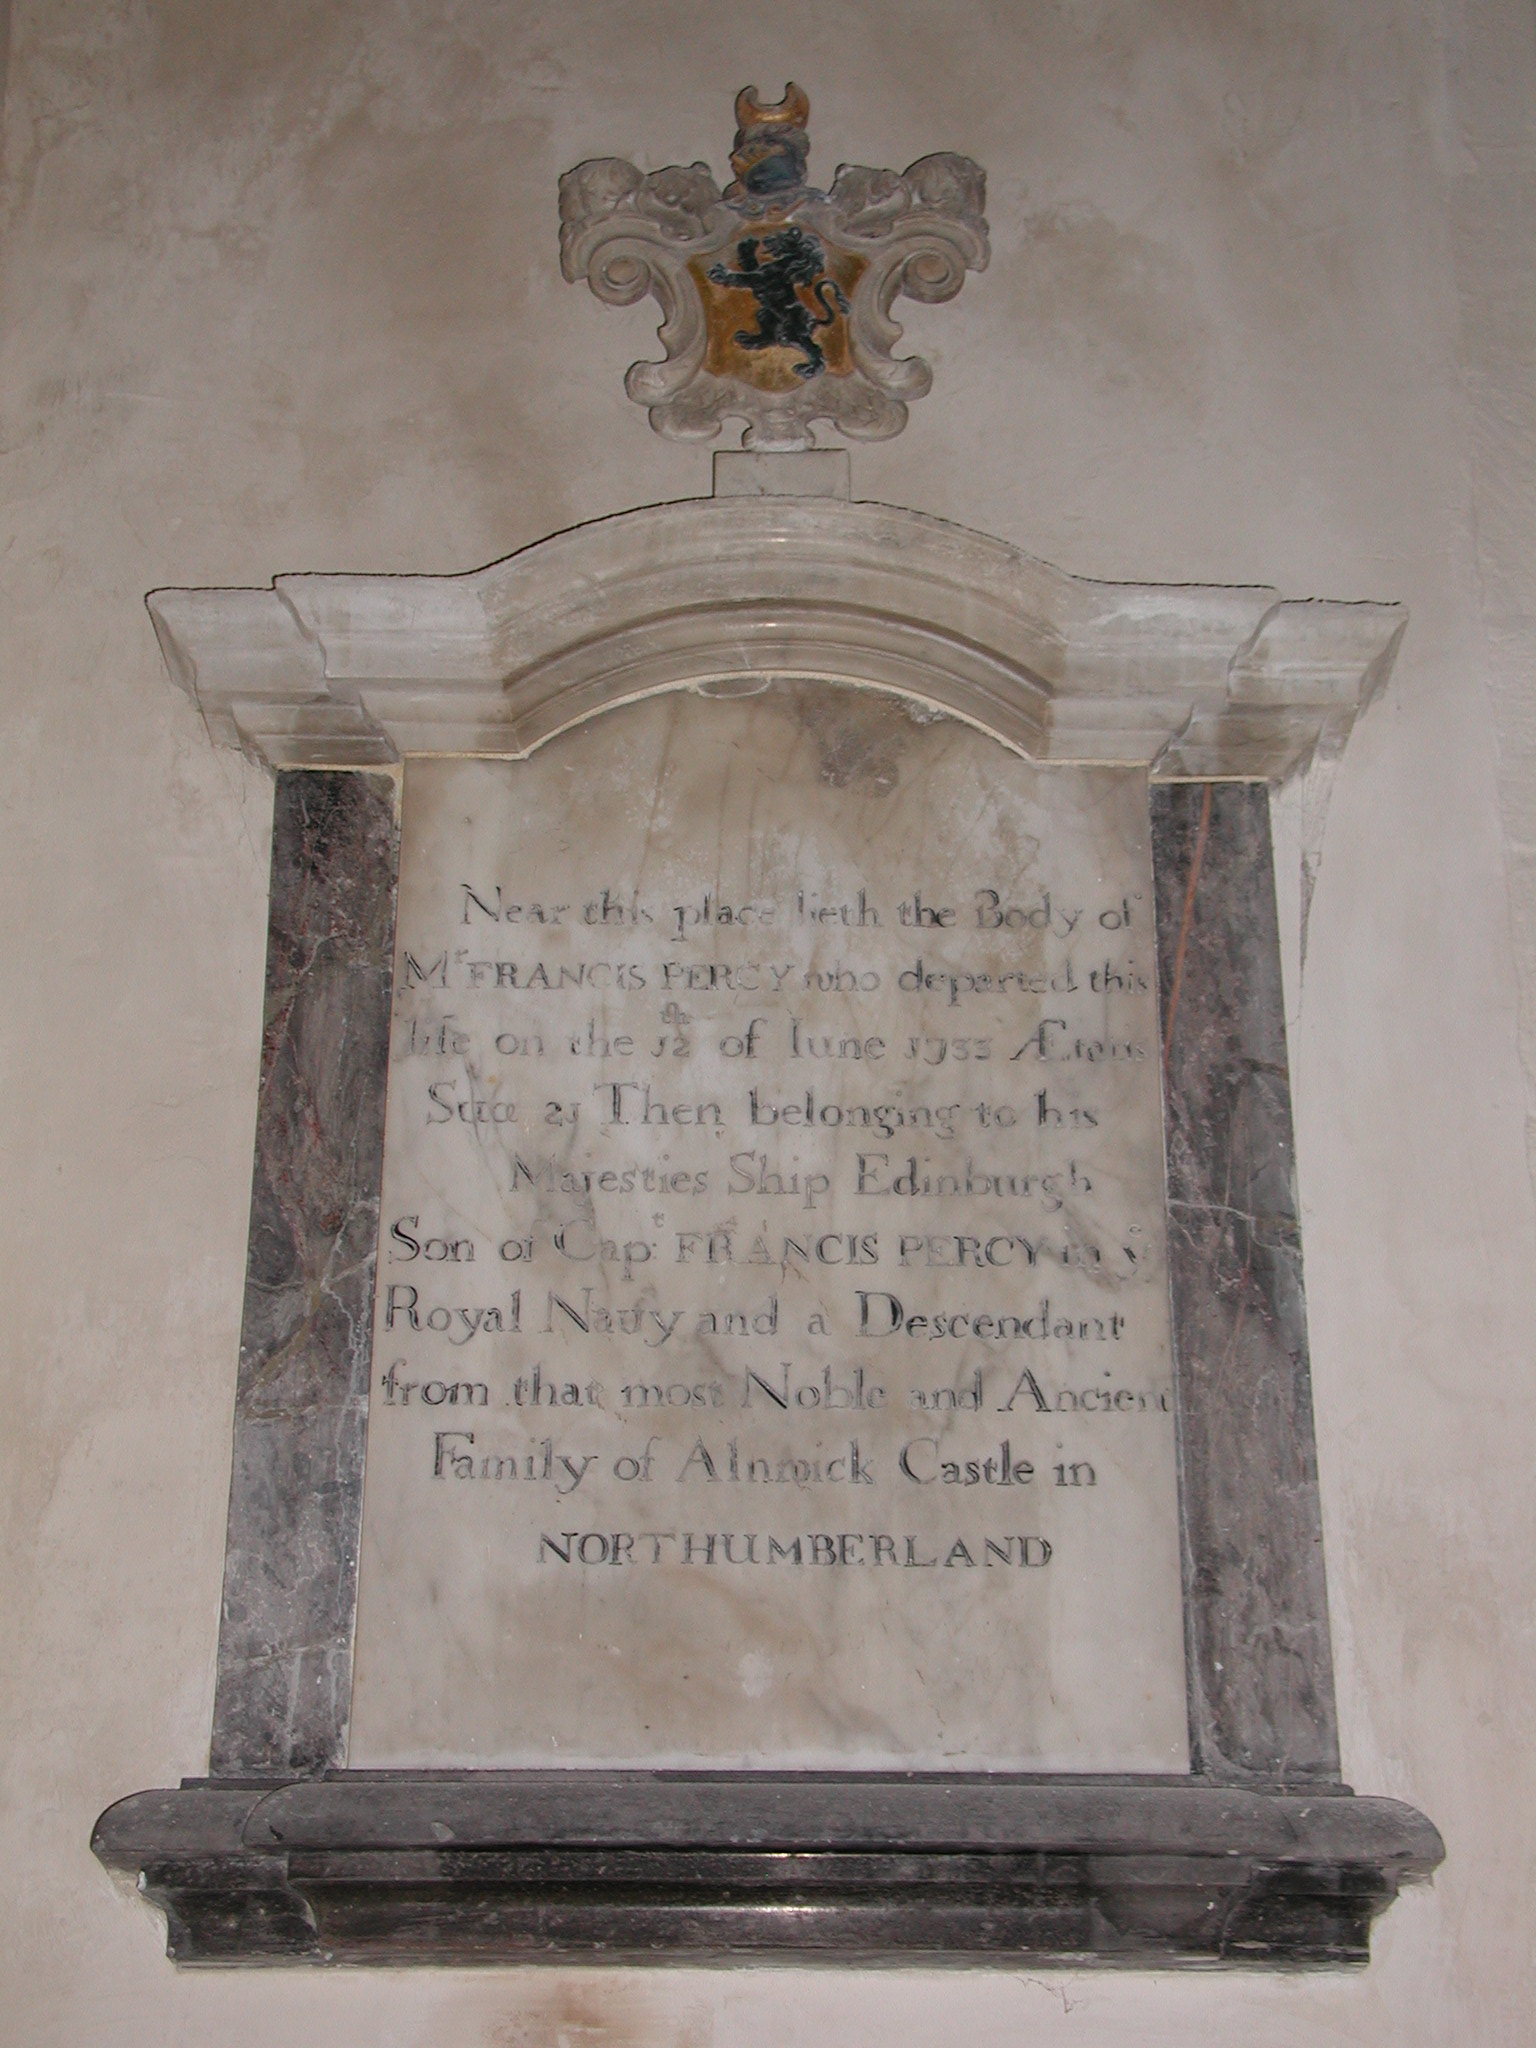 Near this place lieth the Body of
Mr FRANCIS PERCY who departed this
life on the 12th of Iune 1733 Ætatis
Suæ 21 Then belonging to his
Majesties Ship Edinburgh
Son of Capt: FRANCIS PERCY in ye
Royal Navy and a Descendant
from that most Noble and Ancient
Family of Alnwick Castle in
NORTHUMBERLAND